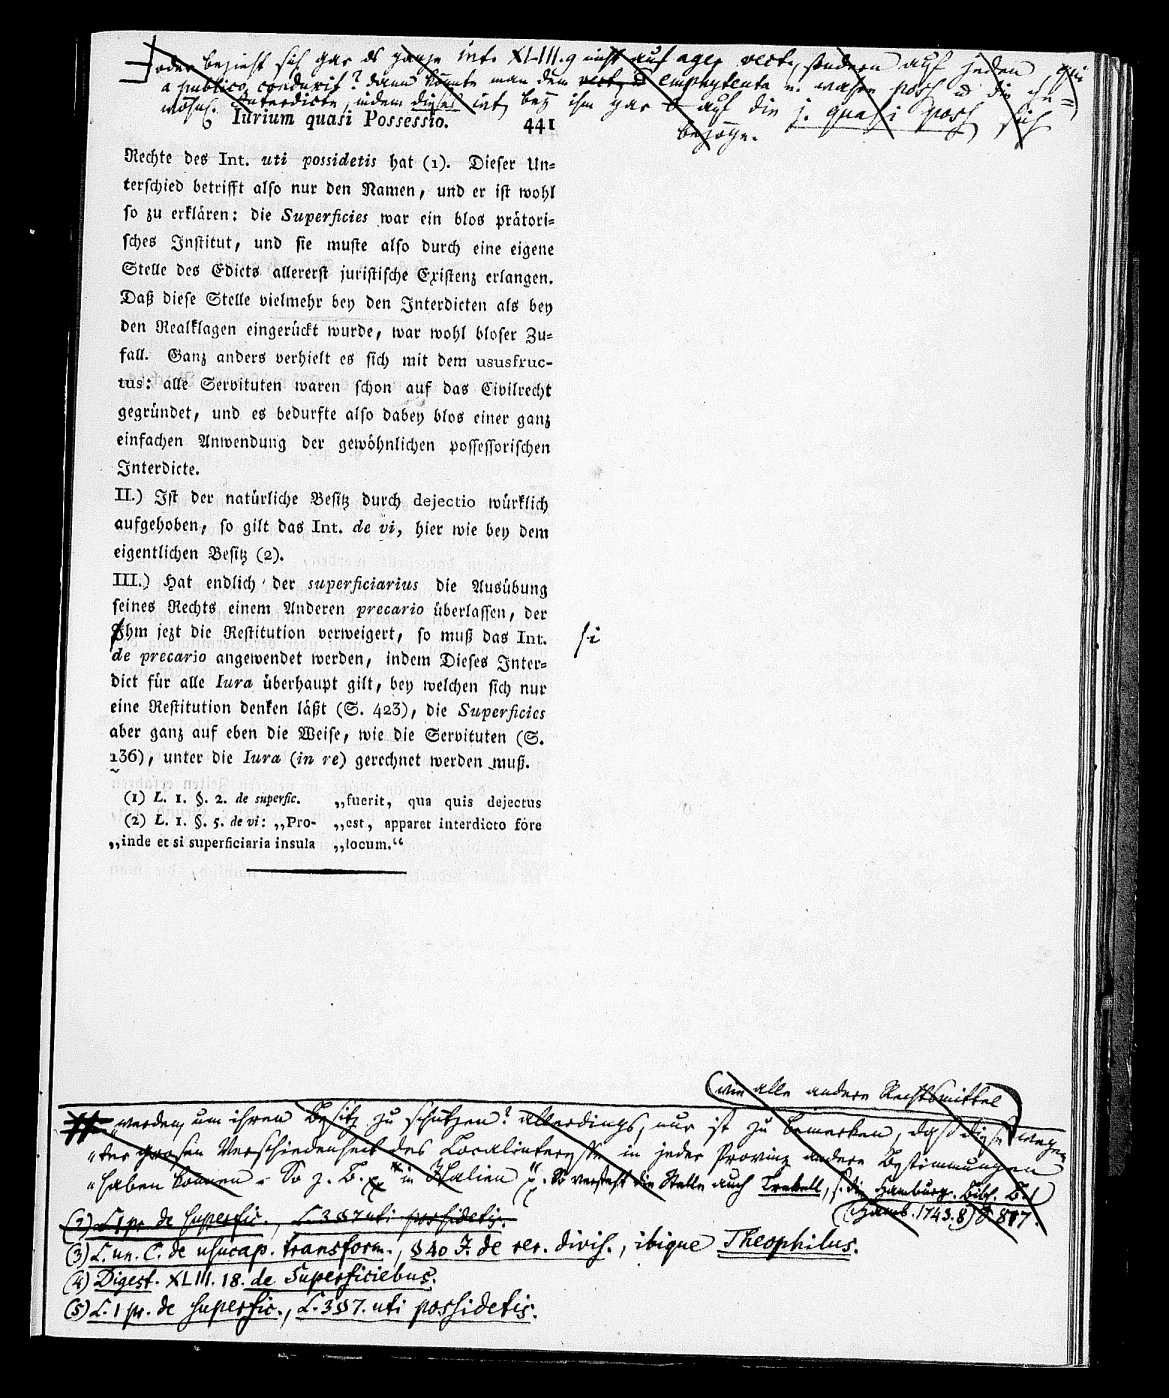 oder bezieht sich gar das ganze int. XLIII. 9 nicht auf ager vect., sondern auf jeden, qui
a publico conduxit? dann könnte man dem emphyteuta u. wahre poss. u. die
Interdicte, indem dieses int. bey ihm gar auf die j. quasi poss. sich
bezöge.
Iurium quasi Possessio. 441
Rechte des Int. uti possidetis hat (1). Dieser Un-
terschied betrifft also nur den Namen, und er ist wohl
so zu erklären: die Superficies war ein blos prätori-
sches Institut, und sie muste also durch eine eigene
Stelle des Edicts allererst juristische Existenz erlangen.
Daß diese Stelle vielmehr bey den Interdicten als bey
den Realklagen eingerückt wurde, war wohl bloser Zu-
fall. Ganz anders verhielt es sich mit dem ususfruc-
tus: alle Servituten waren schon auf das Civilrecht
gegründet, und es bedurfte also dabey blos einer ganz
einfachen Anwendung der gewöhnlichen possessorischen
Interdicte.
II.) Ist der natürliche Besitz durch dejectio würklich
aufgehoben, so gilt das Int. de vi, hier wie bey dem
eigentlichen Besitz (2).
III.) Hat endlich der superficiarius die Ausübung
seines Rechts einem Anderen precario überlassen, der
Ihm jezt die Restitution verweigert, so muß das Int.
de precario angewendet werden, indem Dieses Inter-
dict für alle Iura überhaupt gilt, bey welchen sich nur
eine Restitution denken läßt (S. 423), die Superficies
aber ganz auf eben die Weise, wie die Servituten (S.
136), unter die Iura (in re) gerechnet werden muß.
(1) L. 1. §. 2. de superfic.
(2) L. 1. §. 5. de vi: „Pro-
„inde et si superficiaria insula
„fuerit, qua quis dejectus
„est, apparet interdicto fore
„locum.“
wie alle andere Rechtsmittel
werden, um ihren Besitz zu schützen? allerdings, nur ist zu bemerken, daß diese wegen
„der grosen Verschiedenheit des Localinteresse in jeder Provinz andere Bestimmungen
„haben können. So z. B. in Italien". So versteht die Stelle auch Trekell, s. die Hamburg. Bibl. B. 1
(Hamb. 1743. 8) S. 817.
(2) L 1 pr. de superfic., L. 3 § 7 uti possidetis.
(3) L. un. C. de usucap. transform., § 40 J. de rer. divis., ibique Theophilus.
(4) Digest. XLIII. 18. de Superficiebus.
(5) L. 1 pr. de superfic., L. 3 § 7. uti possidetis.